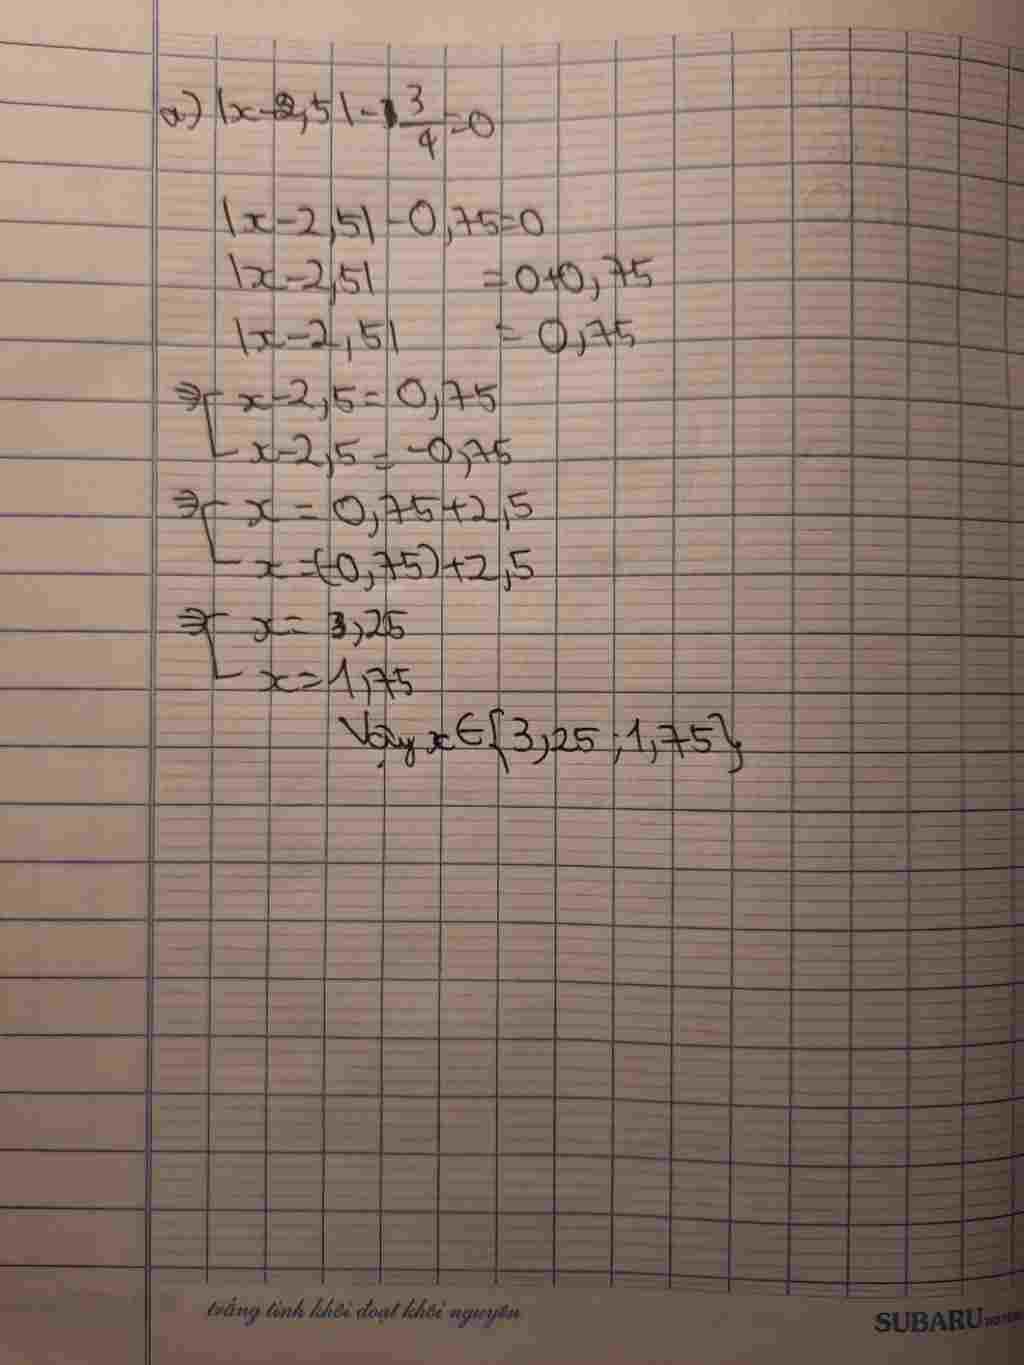 a) |x-2,5| - \frac{3}{4} = 0
|x-2,5| - 0,75=0
|x-2,5| = 0+0,75
|x-2,5| = 0,75
⇒ [ x-2,5 = 0,75
x-2,5 = -0,75
⇒ [ x = 0,75+2,5
x = (-0,75)+2,5
⇒ [ x = 3,25
x = 1,75
Vậy x ∈ {3,25 ; 1,75}
trắng tinh khôi đoạt khôi nguyên
SUBARU